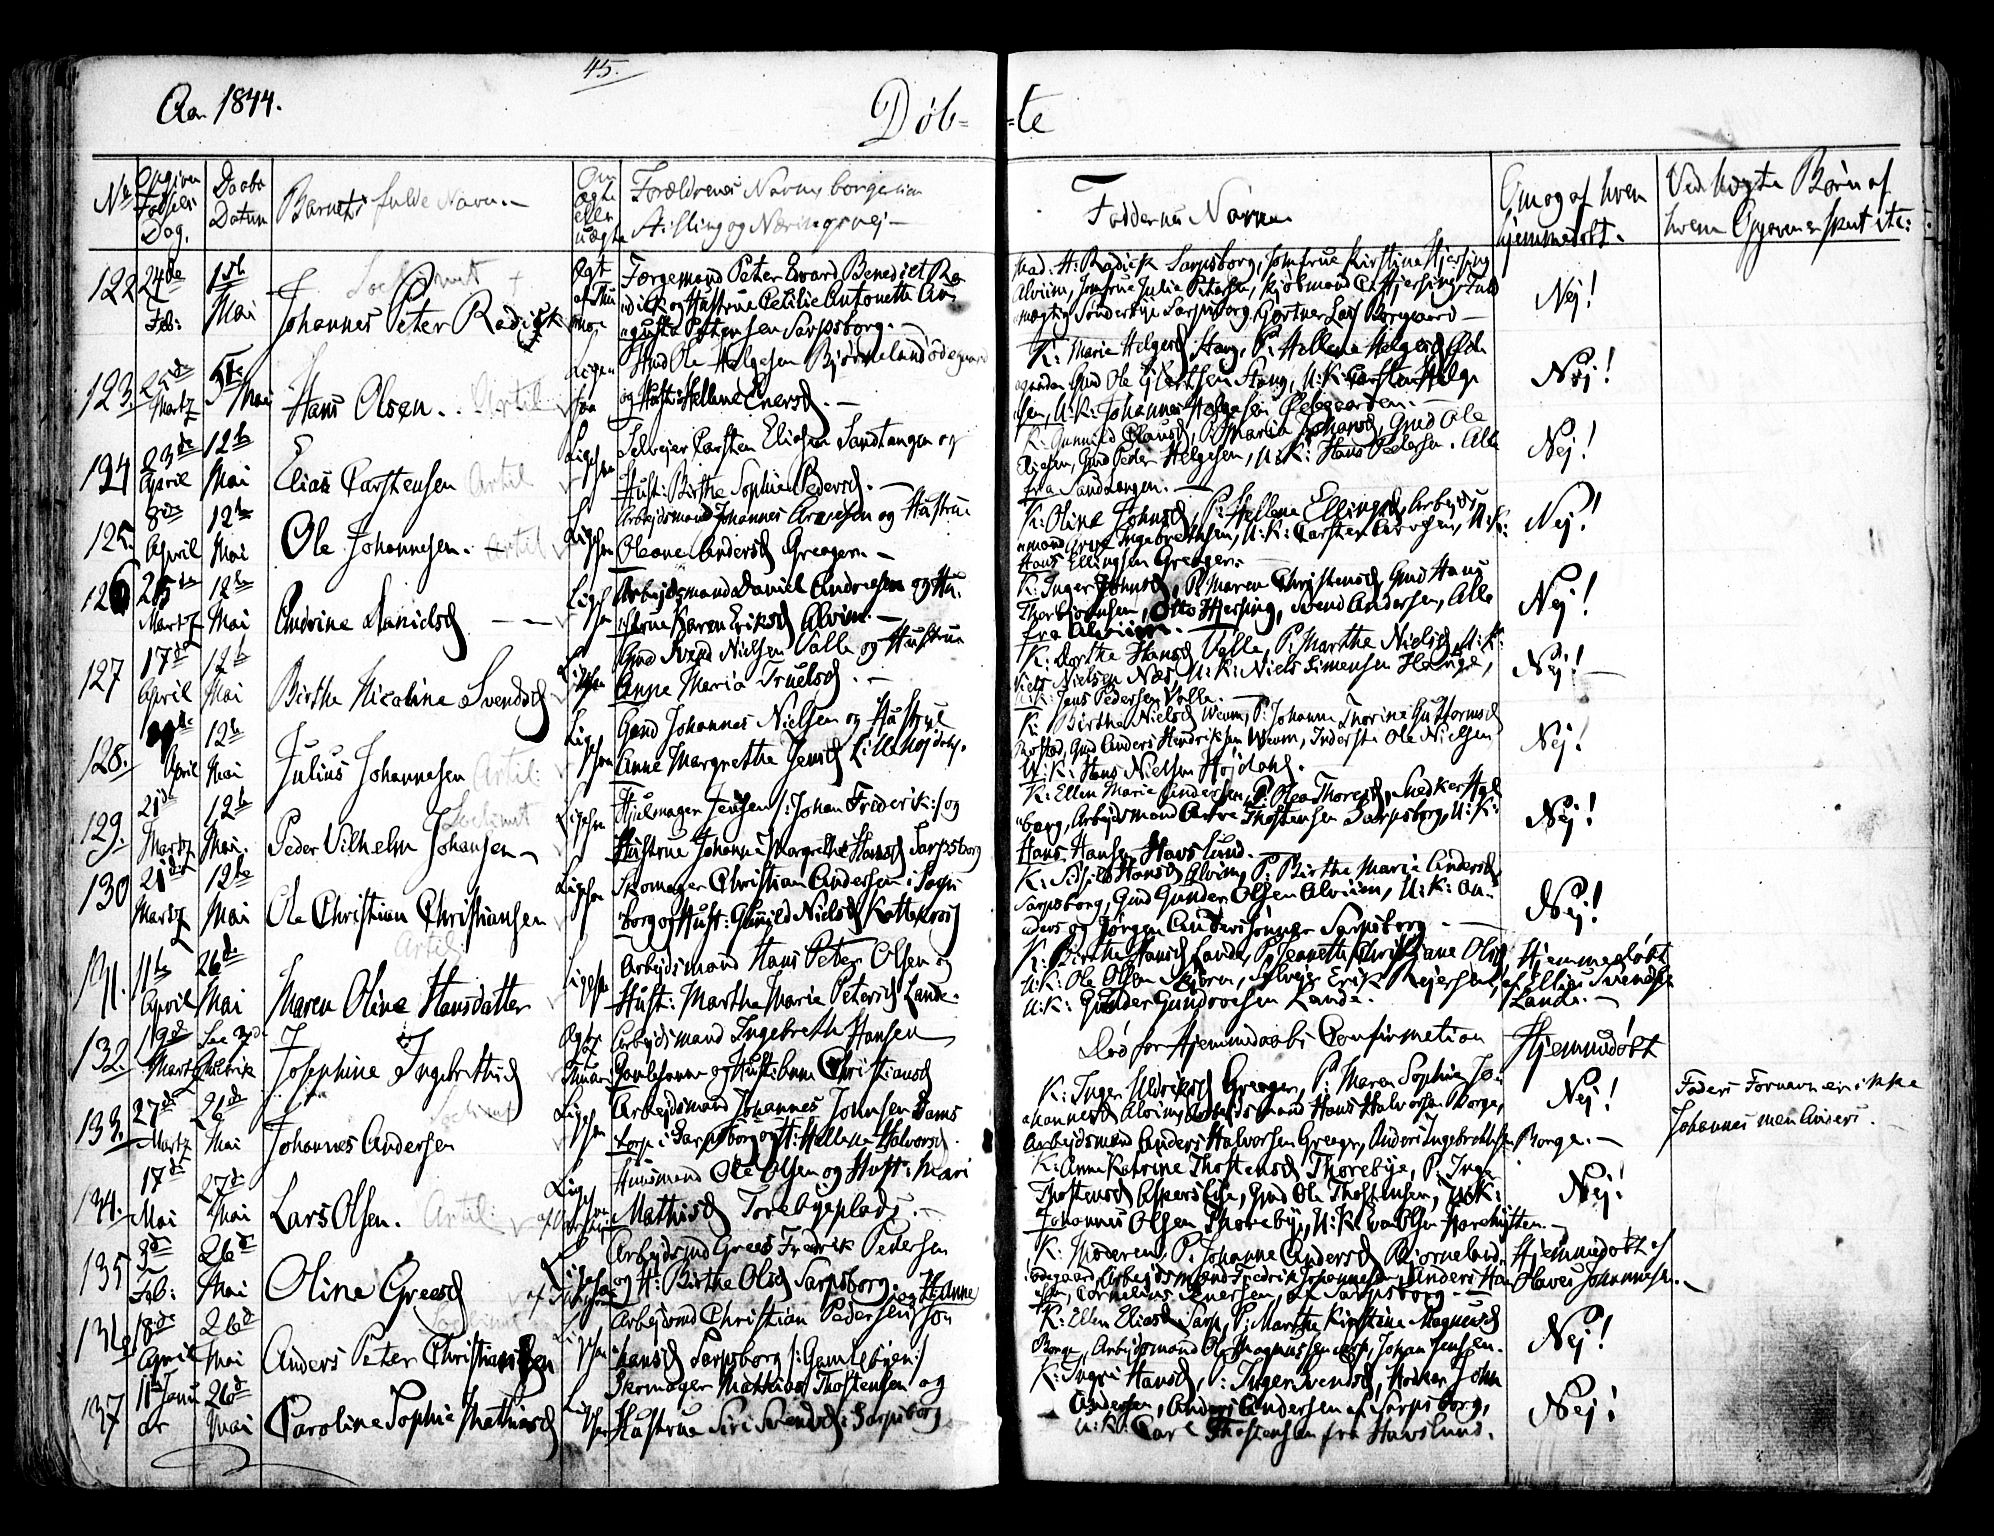 45.
Aar 1844.
Døb-te
No
Opgiven Fødsels Dag.
Daabs Datum
Barnets fulde Navn.
Om ægte eller uægte
Forældrenes Navne, borgerlige
Stilling og Næringsvej
Faddernes Navne
Om og af hvem
hjemmedøbt.
Ved uægte Børn af
hvem Opgaven er skeet etc:
122
24de Feb:
1ste Mai
Johannes Peter Radick
Færgemand Peter Edvard Benedict Ra-
dick og Hustrue Cecilie Antonette Au-
gusta Petersen Sarpsborg.
Mad. H: Radick Sarpsborg, Jomfrue Kirstine Hjersing
Alvim, Jomfrue Julie Petersen, Kjøbmand C. Hjersing, Fuld
mægtig Sønderbye Sarpsborg, Gartner Lars Borgaard
Nej!
123.
Martz
5te Mai
Hans Olsen. Artil
Gmd Ole Helgesen Bjørneland ødegaard
og Hust: Hellene Enersd.
K: Marie Helgesd Haug, P: Hellene Helgesd Øde
gaarden Gmd Ole Gjlbertsen Haug, U:K: Carsten Helge
sen, U:K: Johannes Helgesen Ødegaarden.
Nej!
124
23de April
12te Mai
Elias Carstensen Artil
Ligesaa
Selvejer Carsten Eliasen Sandtangen og
Hust: Birthe Sophie Pedersd.
K: Gunnild Clausd, P: Maria Johansd, Gmd Ole
Eliesen, Gmd Peder Helgesen, U:K: Hans Pedersen. Alle
fra Sandtangen.
Nej!
125.
8de April
12te Mai
Ole Johannesen. Artil
Ligesaa
Arbejdsmand Johannes Arvesen og Hustrue
Oleane Andersd Greager.
K: Oline Johnsd, P: Hellene Ellingsd, Arbejds
mand Arve Ingebrethsen, U:K: Carsten Arvesen, U:K:
Hans Ellingsen Greager.
Nej!
126
25de Martz
12te Mai
Andrine Danielsd
Arbejdsmand Daniel Andreasen og Hu-
strue Karen Eriksd Alvim.
K: Inger Johnsd, P: Maren Christensd, Gmd Hans
Thorbjørnsen, Otto Hjersing, Svend Andersen, Alle
fra Alvim.
Nej!
127
17de April
12te Mai
Birthe Nicoline Svendsd
Gmd Svend Nielsen Valle og Hustrue
Anne Maria Truelsd.
K: Dorthe Hansd Valle, P: Marthe Nielsd, U:K:
Niels Nielsen Næs, U:K: Niels Simensen Hauge,
U:K: Jens Pedersen Valle.
Nej!
128.
April
12te Mai
Julius Johannesen Artil:
Gmd Johannes Nielsen og Hustrue
Anne Margrethe Jensd Lille Højdahl.
K: Birthe Nielsd Weum, P: Johanne Thorine Guttormsd
Rostad, Gmd Anders Hendriksen Weum, Inderste Ole Nielsen
U:K: Hans Nielsen Højdahl.
Nej!
129.
21de Martz
12te Mai.
Peder Vilhelm Johansen
Ligesaa
Hjulmager Jensen /: Johan Frederik :/ og
Hustrue Johanne Margrethe Hansd Sarpsborg
K: Ellen Marie Andersen, P: Olea Thoresd, Snedker Hol
borg, Arbejdsmand Arve Thostensen Sarpsborg, U:K:
Hans Hansen Havslund.
Nej!
130
21de Martz
12te Mai
Ole Christian Christiansen
Artil
Ligesaa
Skomager Christian Andersen i Sarps
borg og Hust: Gunnild Nielsd
K: Sidsil Hansd Alvim, P: Birthe Marie Andersd
Sarpsborg, Gmd Gunder Olsen Alvim, U:K: An-
ders og Jørgen Anderssønner Sarpsborg
Nej!
131.
11te April
26de Mai
Maren Oline Hansdatter
Ligesaa
Arbejdsmand Hans Peter Olsen og
Hust: Marthe Marie Petersd Lande.
K: Birthe Hansd Lande, P: Jeanette Christiane Olsd
U:K: Ole Olsen Bjørn, Selvejer Erik Rejersen,
U:K: Gunder Gundersen Lande.
Hjemmedøbt
af Ellias Svendsen
Lande.
132.
19de Martz
Josephine Ingebrethsd
Arbejdsmand Ingebreth Hansen
og Hust: Anne Christiansd
Død før Hjemmedaabs Confirmation
Hjemmedøbt
133.
27de Martz
26de Mai
Johannes Andersen
Ligesaa
Arbejdsmand Johannes Johnsen
i Sarpsborg og H: Hellene Halvorsd.
K: Inger Uldriksd Greager, P: Maren Sophie Jo-
hannesd Alvim, Arbejdsmand Hans Halvorsen Borge,
Arbejdsmand Anders Halvorsen Greager, Anders Ingebrethsen Borge.
Nej!
Faders Fornavn er ikke
Johannes men Anders.
134.
17de Mai
27de Mai
Lars Olsen. Artil:
Huusmand Ole Olsen og Hust: Mari
Mathisd Torebyeplads.
K: Anne Katrine Thostensd Thorebye, P: Inge
Thostensd Aspers Eje, Gmd Ole Thostensen, U:K:
Johannes Olsen Thoreby, U:K: Even Olsen Harehytten.
Nej!
135
3de Feb:
26de Mai
Oline Greesd
Arbejdsmd Grees Fredrik Pedersen
og H: Birthe Olsd Sarpsborg.
K: Moderen, P: Johanne Andersd Bjørneland
ødegaard, Arbejdsmand Fredrik Johannesen, Anders Han
sen, Cornelius Enersen, af Sarpsborg.
Hjemmedøbt af
Haves Johannesen.
136
18de April
26de Mai
Anders Peter Christiansen
Arbejdsmd Christian Pedersen og H: Anne
Jo-
hansd Sarpsborg /: Gamlebyen :/
K: Ellen Eliasd Sarp, P: Marthe Kirstine Magnusd
Borge, Arbejdsmand Ole Magnussen Sarp, Johan Jensen.
Nej!
137
11te Janu
ar
26de Mai
Caroline Sophie Mathiasd
Skomager Mathias Thostensen og
Hustrue Siri Svendsd i Sarpsborg
K: Ingri Hansd, P: Inger Svensd, Høker John
Andersen, Anders Andersen af Sarpsborg,
U:K: Carl Thostensen fra Havslund.
Nej!